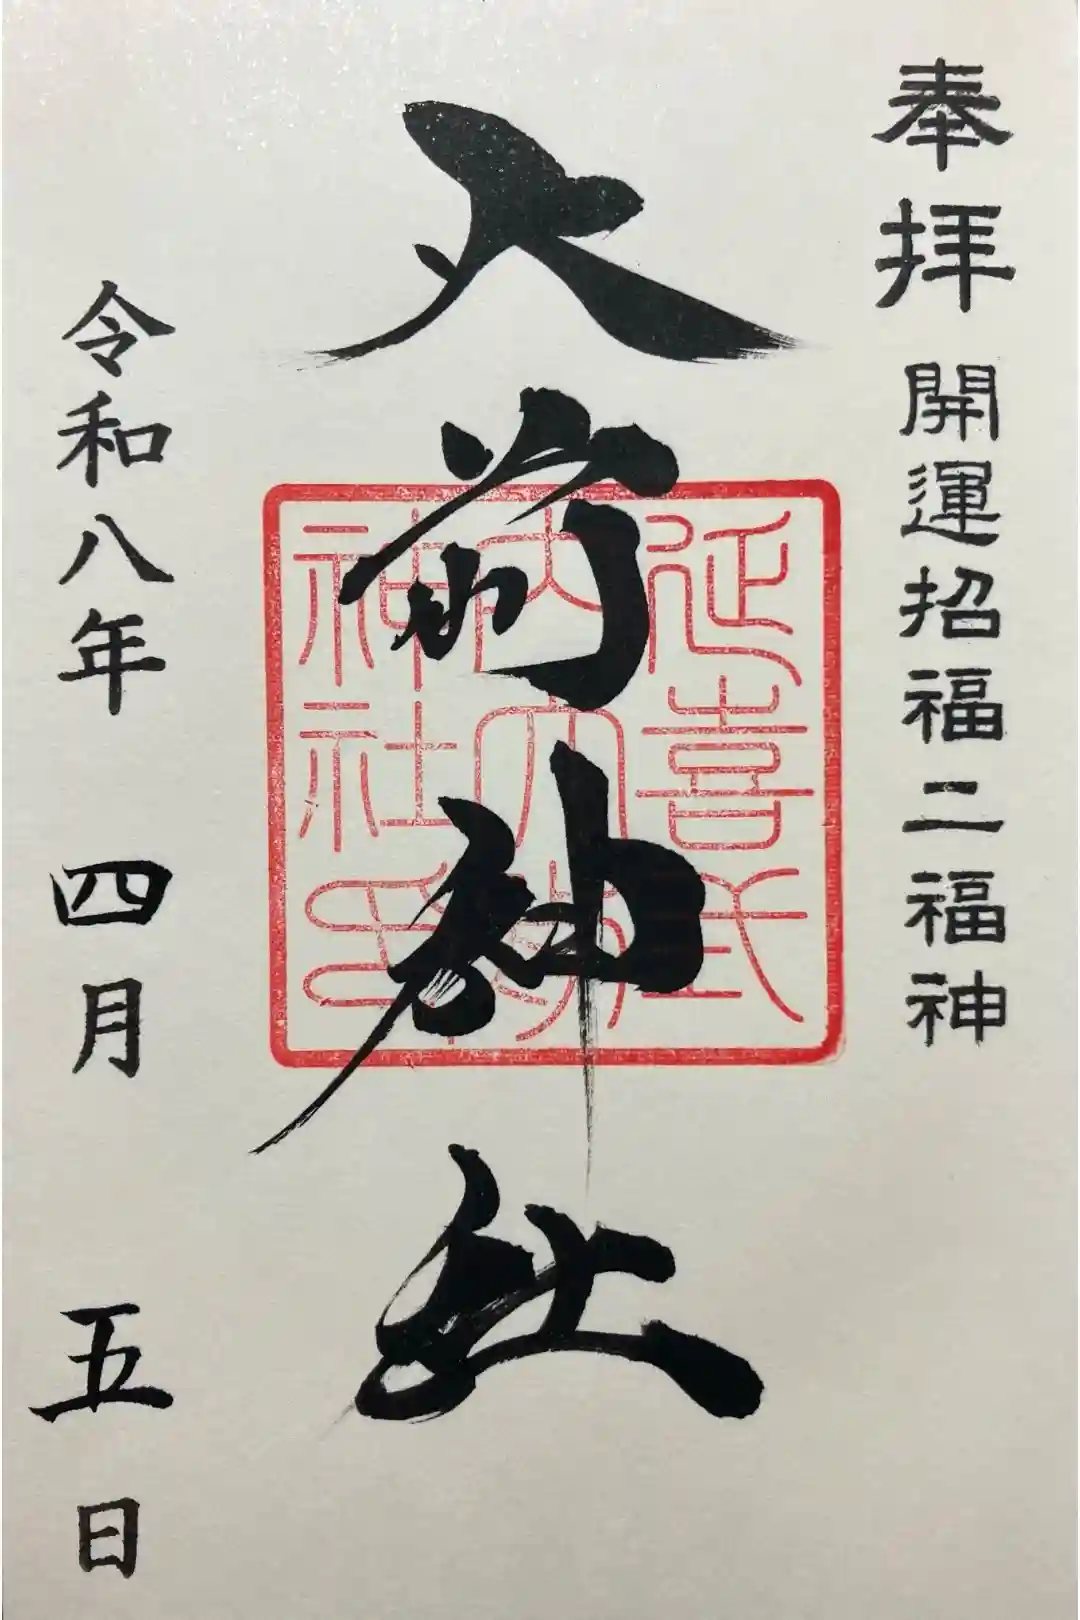 奉拝 開運招福二福神
大前神社
延喜式
内大前
神社印
令和八年 四月 五日